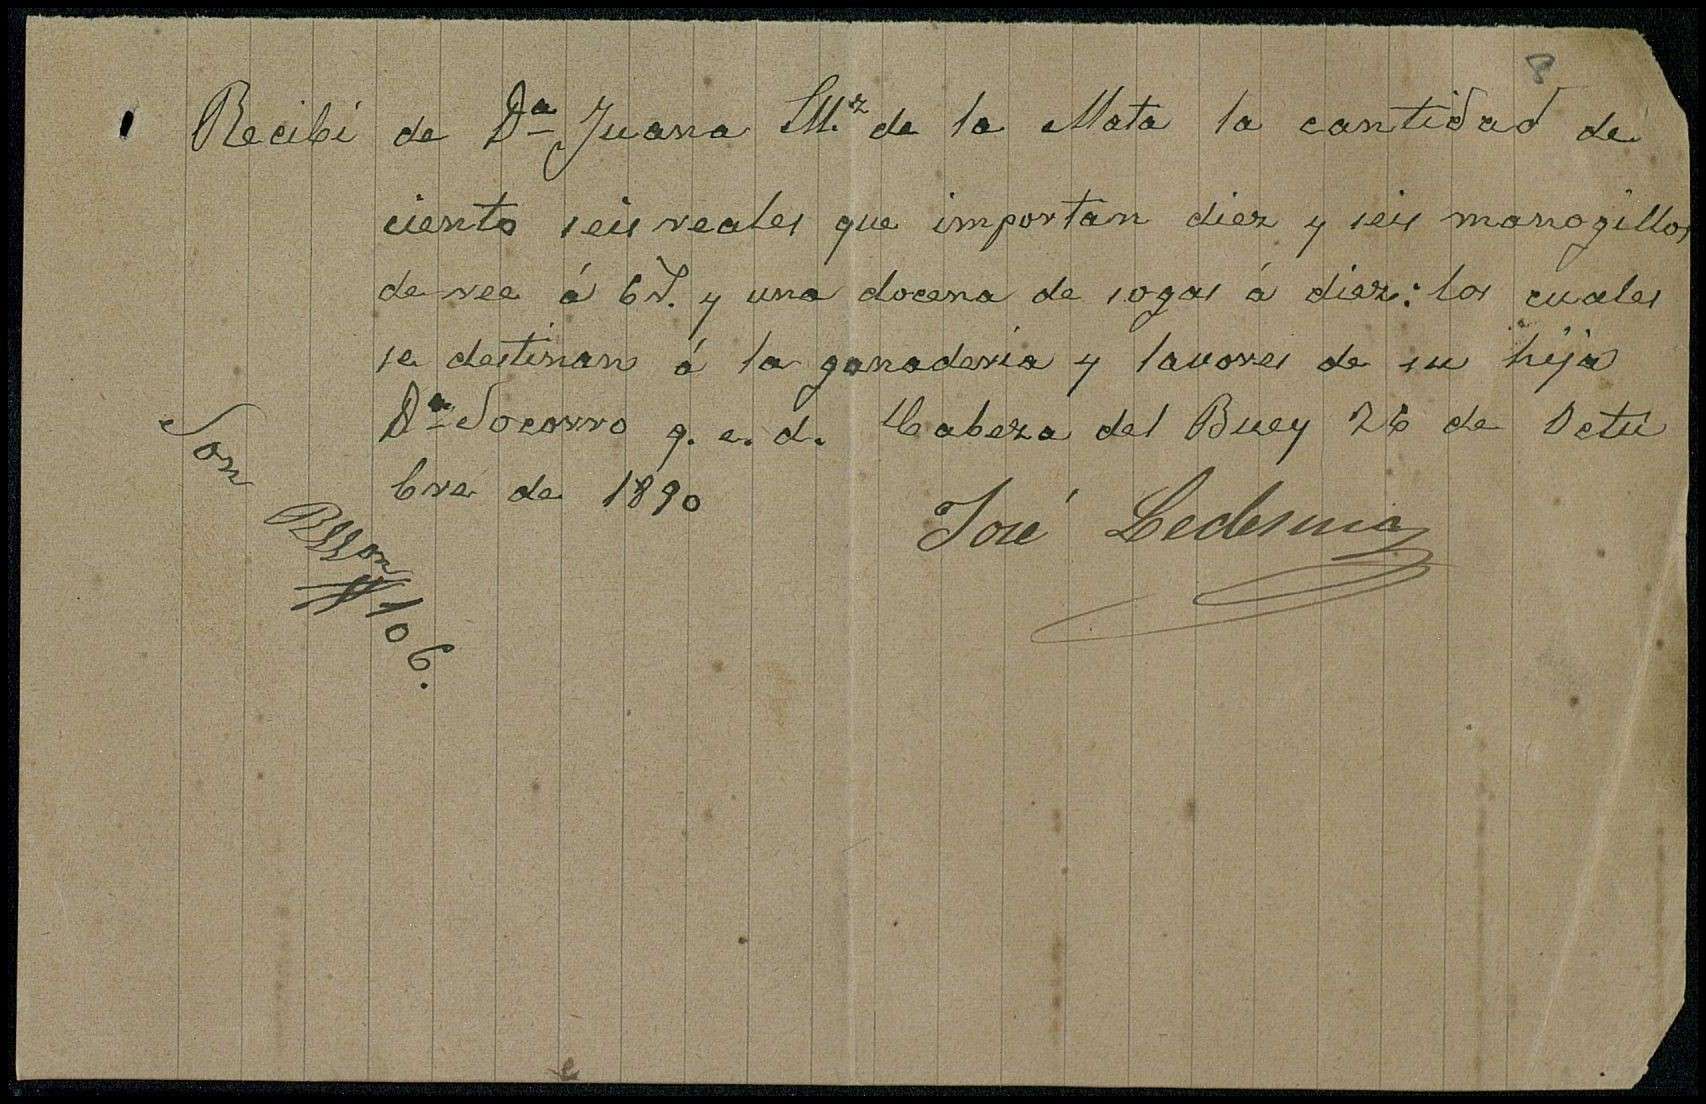 8
Recibi de Dª Juana M.z de la Mata la cantidad de
ciento seis reales que importan diez y seis manogillos
de ree á 6 r. y una docena de sogas á diez: los cuales
se destinan á la ganaderia y lavores de su hija
Dª Socorro q. e. d. Cabeza del Buey 26 de Octu
bre de 1890
José Ledesma
Son
106.